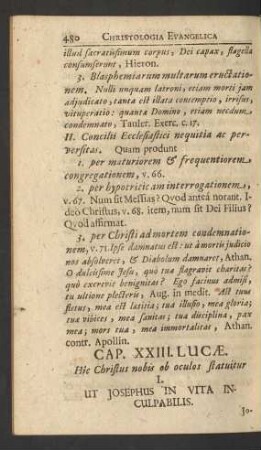 480 CHRISTOLOGIA EVANGELICA
illud sacratissimum corpus, Dei capax, flagella
consumserunt, Hieron.
3. Blasphemiarum multarum eructatio-
nem. Nulli unquam latroni, etiam morti jam
adjudicato, tanta est illata contemptio, irrisus,
vituperatio: quanta Domino, etiam necdum
condemnato, Tauler. Exerc. c. 17.
II. Concilii Ecclesiastici nequitia ac per-
versitas. Quam produnt
1. per maturiorem & frequentiorem
congregationem, v. 66.
2. per hypocriticam interrogationem,
v. 67. Num sit Messias? Quod antea norant. I-
deo Christus, v. 68. item, num sit Dei Filius?
Quod affirmat.
3. per Christi ad mortem condemnatio-
nem, v. 71. Ipse damnatus est: ut à mortis judicio
nos absolveret, & Diabolum damnaret, Athan.
O dulcissime Jesu, quò tua flagravit charitas?
quò excrevit benignitas? Ego facinus admisi,
tu ultione plecteris, Aug. in medit. Ast tuus
fletus, mea est latitia; tua illusio, mea gloria;
tua vibices, mea sanitas; tua disciplina, pax
mea; mors tua, mea immortalitas, Athan.
contr. Apollin.
CAP. XXIII LUCÆ.
Hic Christus nobis ob oculos statuitur
I.
UT JOSEPHUS IN VITA IN-
CULPABILIS.
Jo-